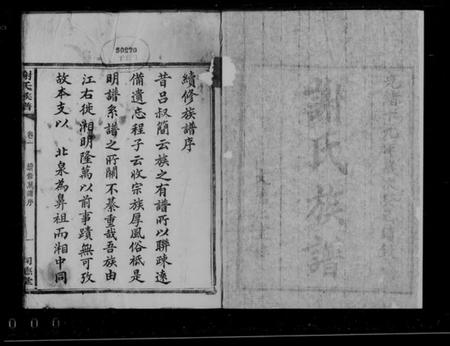 謝氏族譜
50270
續修族譜序
昔呂叔簡云族之有譜所以聯疎遠
備遺忘程子云收宗族厚風俗祗是
明譜系譜之所關不綦重哉吾族由
江右徙湘明隆萬以前事蹟無可攷
故本支以 北泉為鼻祖而湘中同
謝氏族譜 卷一 續修族譜序
000